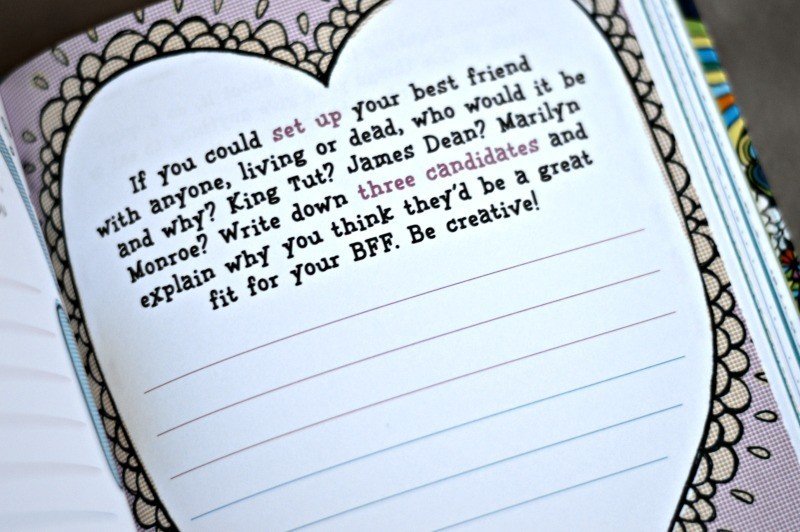 If you could set up your best friend
with anyone, living or dead, who would it be
and why? King Tut? James Dean? Marilyn
Monroe? Write down three candidates and
explain why you think they'd be a great
fit for your BFF. Be creative!